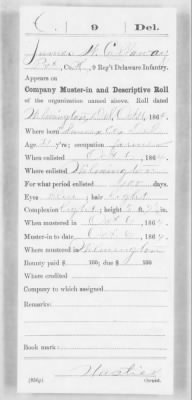 C. 9 Del.
James H.
Pvt., Co. , 9 Reg't Delaware Infantry.
Appears on
Company Muster-in and Descriptive Roll
of the organization named above. Roll dated
Wilmington, Del. Oct. 6, 1864.
Where born City
Age y'rs; occupation Farmer
When enlisted Oct. 1, 1864
Where enlisted Wilmington
For what period enlisted 100 days
Eyes ; hair Light
Complexion Light; height 5 ft. in.
When mustered in Oct. 6, 1864
Muster-in to date Oct. 6, 1864
Where mustered in Wilmington
Bounty paid $ 100; due $ 100
Where credited
Company to which assigned
Remarks:
Book mark:
(356g)